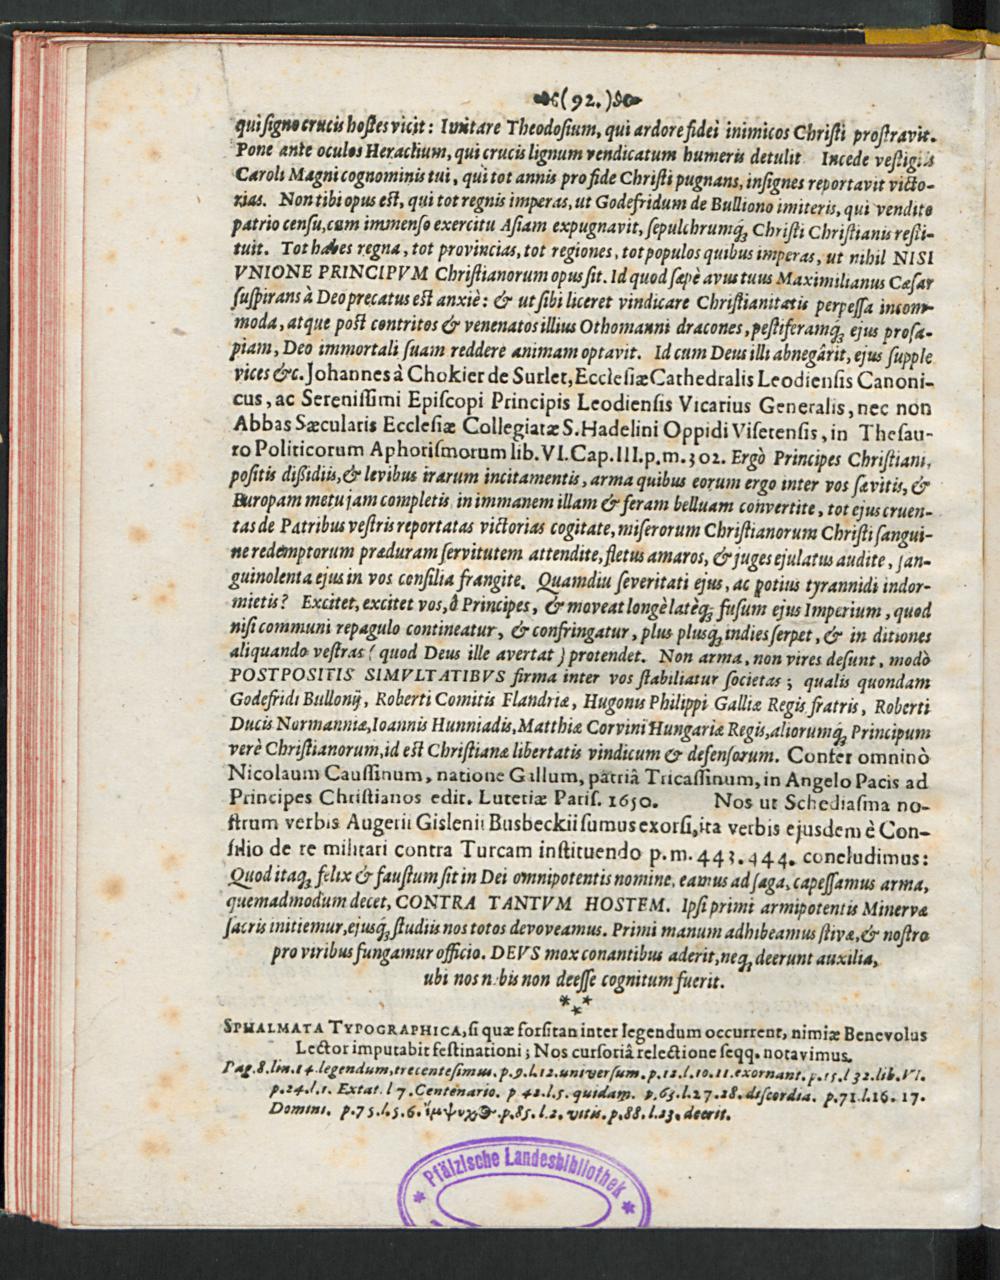 (92.)
qui signo crucis hostes vicit: Imitare Theodosium, qui ardore fidei inimicos Christi prostravit.
Pone ante oculos Heraclium, qui crucis lignum vendicatum humeris detulit Incede vestigiis
Caroli Magni cognominis tui, qui tot annis pro fide Christi pugnans, insignes reportavit victo-
rias. Non tibi opus est, qui tot regnis imperas, ut Godefridum de Bulliono imiteris, qui vendito
patrio censu, cum immenso exercitu Asiam expugnavit, sepulchrumq́; Christi Christianis resti-
tuit. Tot habes regna, tot provincias, tot regiones, tot populos quibus imperas, ut nihil NISI
VNIONE PRINCIPVM Christianorum opus sit. Id quod sæpè avus tuus Maximilianus Cæsar
suspirans à Deo precatus est anxiè: & ut sibi liceret vindicare Christianitatis perpessa incom-
moda, atque post contritos & venenatos illius Othomanni dracones, pestiferamq́; ejus prosa-
piam, Deo immortali suam reddere animam optavit. Id cum Deus illi abnegârit, ejus supple
vices &c. Johannes à Chokier de Surlet, Ecclesiæ Cathedralis Leodiensis Canoni-
cus, ac Serenissimi Episcopi Principis Leodiensis Vicarius Generalis, nec non
Abbas Sæcularis Ecclesiæ Collegiatæ S. Hadelini Oppidi Visetensis, in Thesau-
ro Politicorum Aphorismorum lib. VI. Cap. III. p. m. 302. Ergò Principes Christiani,
positis dißidiis, & levibus irarum incitamentis, arma quibus eorum ergo inter vos sævitis, &
Europam metu jam completis in immanem illam & feram belluam convertite, tot ejus cruen-
tas de Patribus vestris reportatas victorias cogitate, miserorum Christianorum Christi sangui-
ne redemptorum præduram servitutem attendite, fletus amaros, & juges ejulatus audite, san-
guinolenta ejus in vos consilia frangite. Quamdiu severitati ejus, ac potius tyrannidi indor-
mietis? Excitet, excitet vos, ô Principes, & moveat longè latèq́; fusum ejus Imperium, quod
nisi communi repagulo contineatur, & confringatur, plus plusq́; indies serpet, & in ditiones
aliquando vestras (quod Deus ille avertat) protendet. Non arma, non vires desunt, modò
POSTPOSITIS SIMVLTATIBVS firma inter vos stabiliatur societas; qualis quondam
Godefridi Bullonij, Roberti Comitis Flandriæ, Hugonis Philippi Galliæ Regis fratris, Roberti
Ducis Normanniæ, Ioannis Hunniadis, Matthiæ Corvini Hungariæ Regis, aliorumq́; Principum
verè Christianorum, id est Christianæ libertatis vindicum & defensorum. Confer omninò
Nicolaum Caussinum, natione Gallum, patriâ Tricassinum, in Angelo Pacis ad
Principes Christianos edit. Lutetiæ Paris. 1650. Nos ut Schediasma no-
strum verbis Augerii Gislenii Busbeckii sumus exorsi, ita verbis ejusdem è Con-
silio de re militari contra Turcam instituendo p. m. 443. 444. concludimus:
Quod itaq; felix & faustum sit in Dei omnipotentis nomine, eamus ad saga, capessamus arma,
quemadmodum decet, CONTRA TANTVM HOSTEM. Ipsi primi armipotentis Minervæ
sacris initiemur, ejusq́; studiis nos totos devoveamus. Primi manum adhibeamus stivæ, & nostro
pro viribus fungamur officio. DEVS mox conantibus aderit, neq; deerunt auxilia,
ubi nos nobis non deesse cognitum fuerit.
***
SPHALMATA TYPOGRAPHICA, si quæ forsitan inter legendum occurrent, nimiæ Benevolus
Lector imputabit festinationi; Nos cursoriâ relectione seqq. notavimus.
Pag. 8. lin. 14. legendum, trecentesimus. p. 9. l. 12. universum. p. 12. l. 10. 11. exornant. p. 15. l 32. lib. VI.
p. 24. l. 1. Extat. l 7. Centenario. p 42. l. 5. quidam. p. 63. l. 27. 28. discordia. p. 71. l. 16. 17.
Domini. p. 75. l. 5. 6. ἔμψυχ⊙. p. 85. l. 2. vitis. p. 88. l. 23. deerit.
* Pfälzische Landesbibliothek *